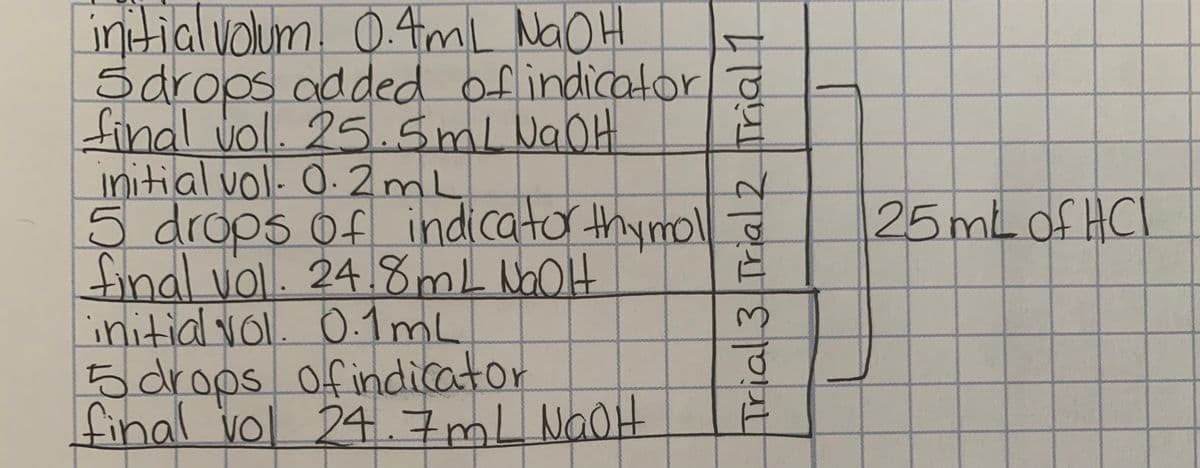 initial volum. 0.4mL NaOH
5 drops added of indicator
final vol. 25.5mL NaOH
Trial 1
initial vol. 0.2mL
5 drops of indicator thymol
final vol. 24.8mL NaOH
Trial 2
initial vol. 0.1mL
5 drops of indicator
final vol 24.7mL NaOH
Trial 3
25mL of HCl